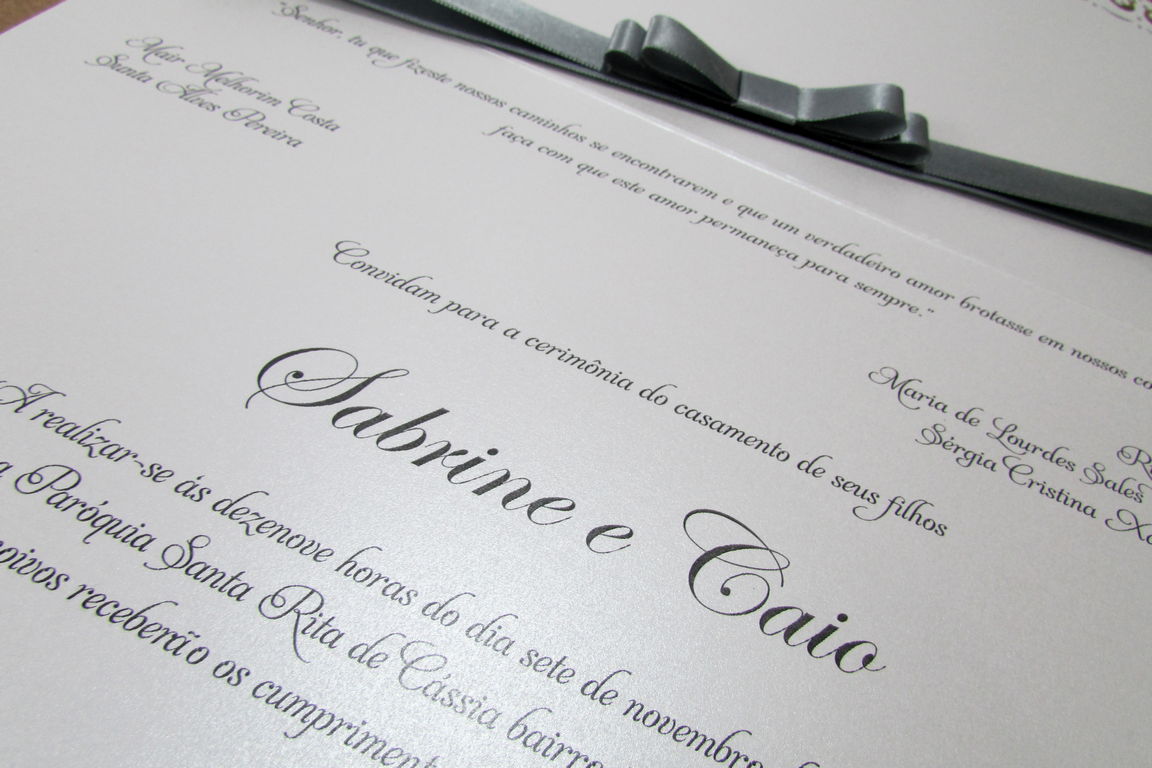 "Senhor, tu que fizeste nossos caminhos se encontrarem e que um verdadeiro amor brotasse em nossos
faça com que este amor permaneça para sempre."
Mair Melhorim Costa
Santa Alves Pereira
Maria de Lourdes Sales
Sérgia Cristina
Convidam para a cerimônia do casamento de seus filhos
Sabrine e Caio
A realizar-se às dezenove horas do dia sete de novembro
Paróquia Santa Rita de Cássia bairro
receberão os